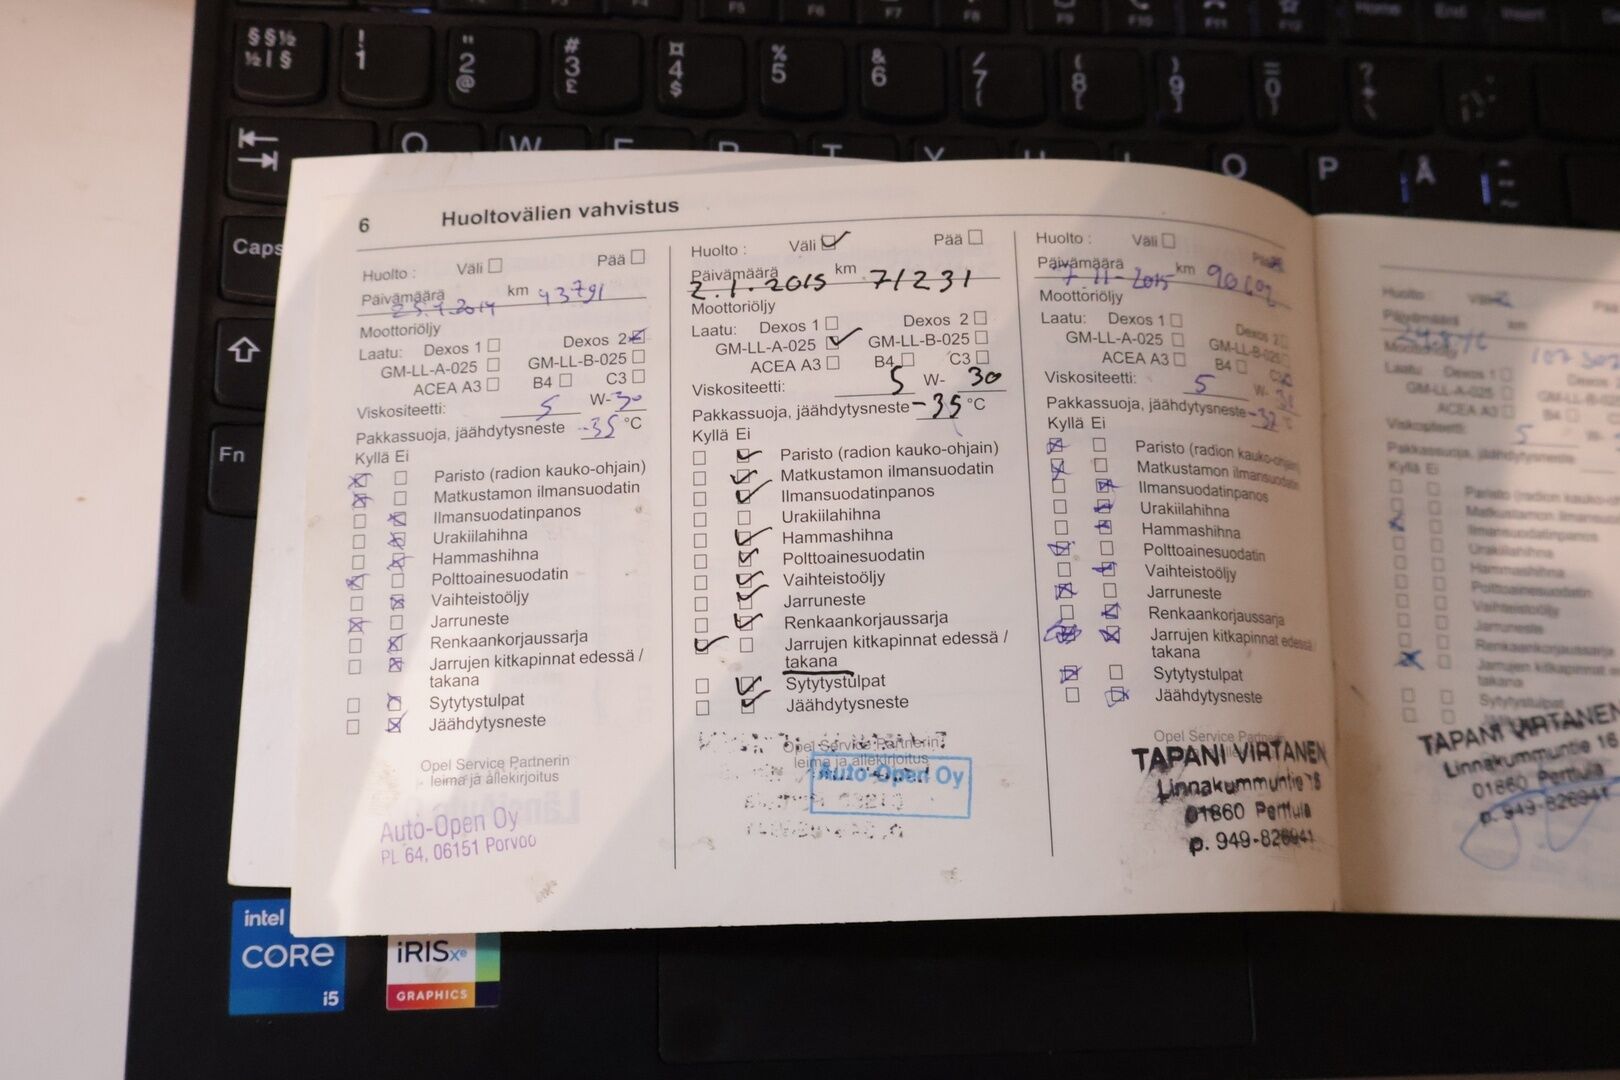 § § ½
½ | §
!
1
"
2
@
#
3
£
¤
4
$
%
5
&
6
/
7
{
(
8
[
)
9
]
=
0
}
?
+
\
F10
Home
End
Insert
Q W E R T Y U I O P Å
Caps
Fn
6 Huoltovälien vahvistus
Huolto : Väli Pää
Päivämäärä km
Moottoriöljy
Laatu: Dexos 1 Dexos 2
GM-LL-A-025 GM-LL-B-025
ACEA A3 B4 C3
Viskositeetti: 5 W-30
Pakkassuoja, jäähdytysneste -35 °C
Kyllä Ei
Paristo (radion kauko-ohjain)
Matkustamon ilmansuodatin
Ilmansuodatinpanos
Urakiilahihna
Hammashihna
Polttoainesuodatin
Vaihteistoöljy
Jarruneste
Renkaankorjaussarja
Jarrujen kitkapinnat edessä /
takana
Sytytystulpat
Jäähdytysneste
Opel Service Partnerin
leima ja allekirjoitus
Auto-Open Oy
PL 64, 06151 Porvoo
Huolto : Väli Pää
Päivämäärä km 71231
2.1.2015
Moottoriöljy
Laatu: Dexos 1 Dexos 2
GM-LL-A-025 GM-LL-B-025
ACEA A3 B4 C3
Viskositeetti: 5 W- 30
Pakkassuoja, jäähdytysneste -35 °C
Kyllä Ei
Paristo (radion kauko-ohjain)
Matkustamon ilmansuodatin
Ilmansuodatinpanos
Urakiilahihna
Hammashihna
Polttoainesuodatin
Vaihteistoöljy
Jarruneste
Renkaankorjaussarja
Jarrujen kitkapinnat edessä /
takana
Sytytystulpat
Jäähdytysneste
Opel Service Partnerin
leima ja allekirjoitus
Auto-Open Oy
Huolto : Väli
Päivämäärä km
7.11.2015
Moottoriöljy
Laatu: Dexos 1 Dexos 2
GM-LL-A-025 GM-LL-B-025
ACEA A3 B4
Viskositeetti: 5 W-
Pakkassuoja, jäähdytysneste
Kyllä Ei
Paristo (radion kauko-ohjain)
Matkustamon ilmansuodatin
Ilmansuodatinpanos
Urakiilahihna
Hammashihna
Polttoainesuodatin
Vaihteistoöljy
Jarruneste
Renkaankorjaussarja
Jarrujen kitkapinnat edessä /
takana
Sytytystulpat
Jäähdytysneste
Opel Service
TAPANI VIRTANEN
Linnakummuntie 16
01860 Perttula
p. 949-826941
Huolto
Päivämäärä km
Moottoriöljy
GM-LL-A-025
ACEA A3
Viskositeetti: 5
Pakkassuoja, jäähdytysneste
Kyllä Ei
Paristo (radion
Matkustamon ilmansuodatin
Ilmansuodatinpanos
Urakiilahihna
Hammashihna
Polttoainesuodatin
Vaihteistoöljy
Jarruneste
Renkaankorjaussarja
Jarrujen kitkapinnat
takana
Sytytystulpat
Jäähdytysneste
TAPANI VIRTANEN
Linnakummuntie 16
01860 Perttula
p. 949-826941
intel
CORE
i5
iRISxe
GRAPHICS